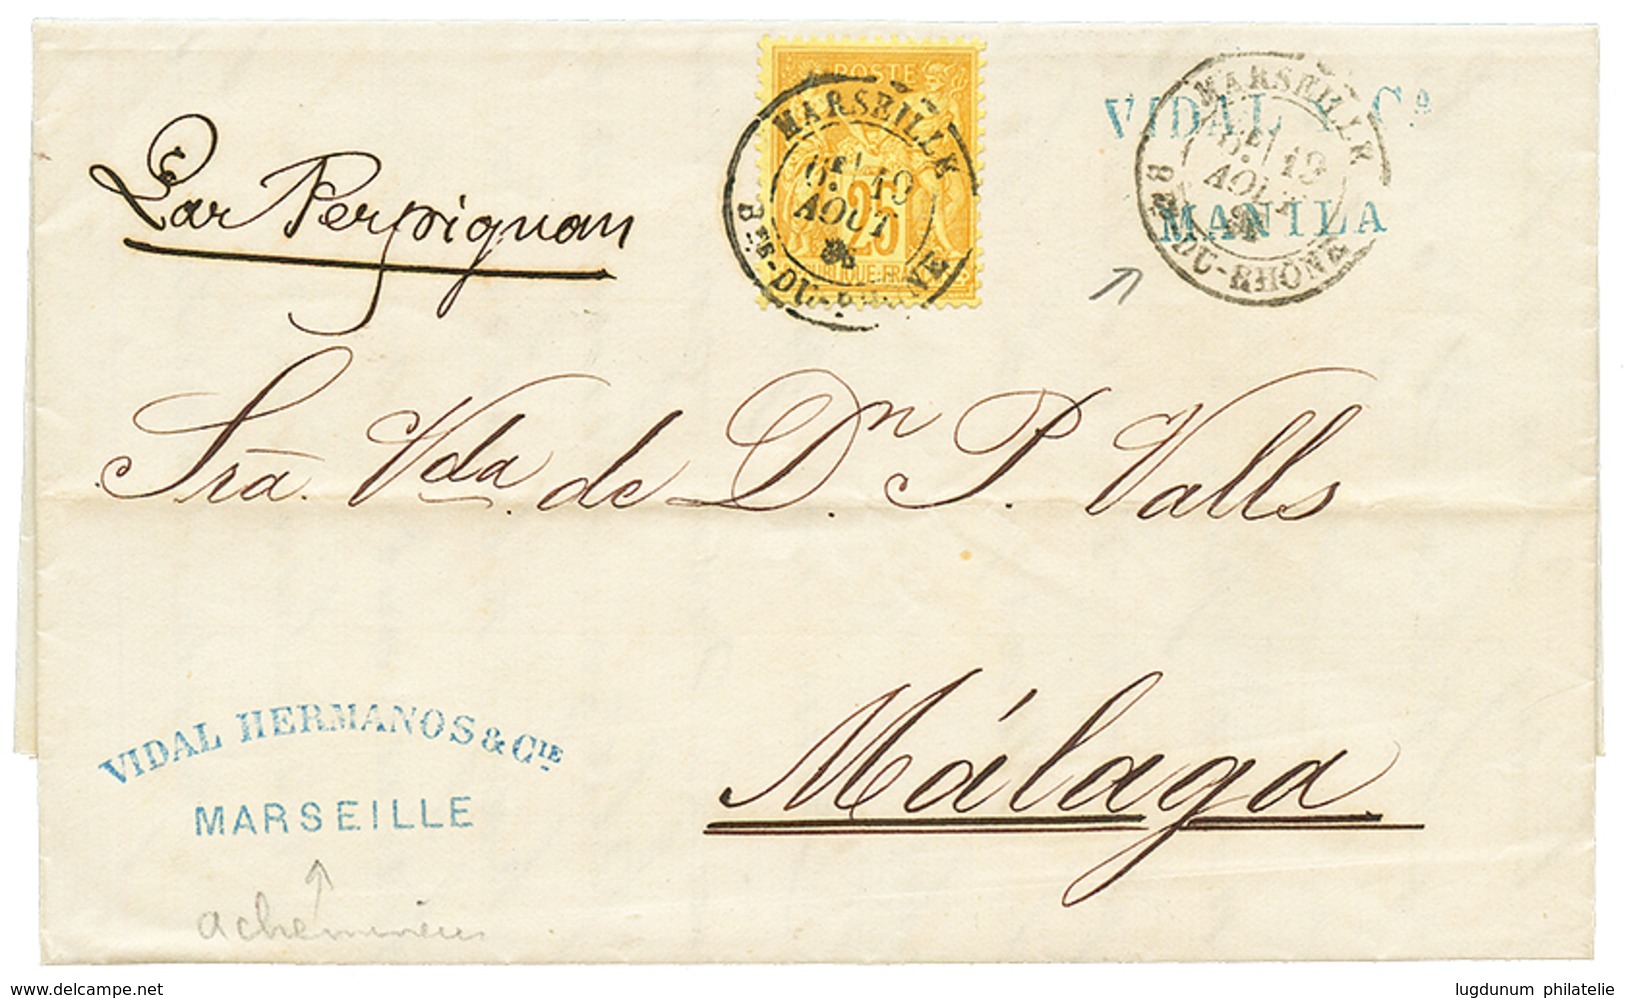 Par Perpignan
POSTE
25
MARSEILLE
19
AOUT
BCHES-DU-RHONE
VIDAL Y Ca
MANILA
MARSEILLE
19
AOUT
BCHES-DU-RHONE
Sra. Vda. de Dn P. Valls
Málaga
VIDAL HERMANOS & CIE
MARSEILLE
achemineur
delcampe.net
lugdunum philatelie